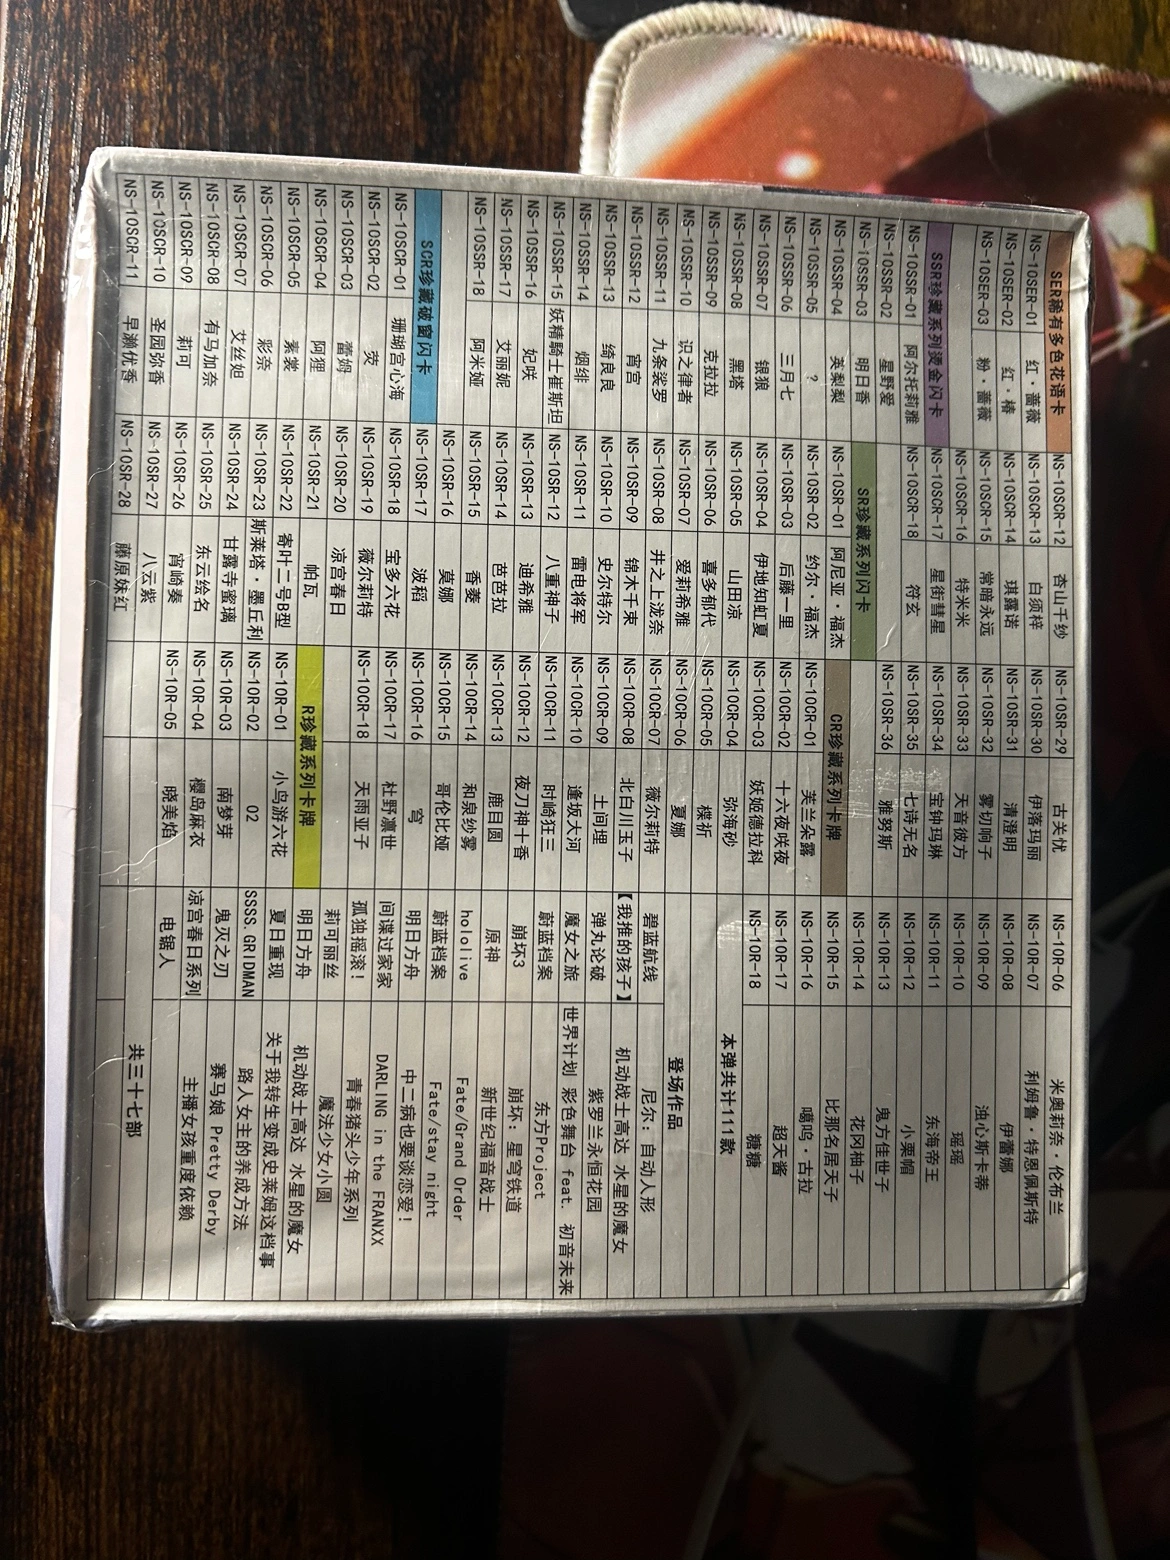 SER稀有多色花语卡
NS-10SER-01 红·蔷薇
NS-10SER-02 红·椿
NS-10SER-03 粉·蔷薇
SSR珍藏系列烫金闪卡
NS-10SSR-01 阿尔托莉雅
NS-10SSR-02 星野爱
NS-10SSR-03 明日香
NS-10SSR-04 英梨梨
NS-10SSR-05 ?
NS-10SSR-06 三月七
NS-10SSR-07 银狼
NS-10SSR-08 黑塔
NS-10SSR-09 克拉拉
NS-10SSR-10 识之律者
NS-10SSR-11 九条裟罗
NS-10SSR-12 宵宫
NS-10SSR-13 绮良良
NS-10SSR-14 烟绯
NS-10SSR-15 妖精骑士崔斯坦
NS-10SSR-16 妃咲
NS-10SSR-17 艾丽妮
NS-10SSR-18 阿米娅
SCR珍藏破窗闪卡
NS-10SCR-01 珊瑚宫心海
NS-10SCR-02 荧
NS-10SCR-03 蕾姆
NS-10SCR-04 阿狸
NS-10SCR-05 素裳
NS-10SCR-06 彩奈
NS-10SCR-07 艾丝妲
NS-10SCR-08 有马加奈
NS-10SCR-09 莉可
NS-10SCR-10 圣园弥香
NS-10SCR-11 早濑优香
NS-10SCR-12 杏山千纱
NS-10SCR-13 白须梓
NS-10SCR-14 琪露诺
NS-10SCR-15 常暗永远
NS-10SCR-16 特米米
NS-10SCR-17 星街彗星
NS-10SCR-18 符玄
SR珍藏系列闪卡
NS-10SR-01 阿尼亚·福杰
NS-10SR-02 约尔·福杰
NS-10SR-03 后藤一里
NS-10SR-04 伊地知虹夏
NS-10SR-05 山田凉
NS-10SR-06 喜多郁代
NS-10SR-07 爱莉希雅
NS-10SR-08 井之上泷奈
NS-10SR-09 锦木千束
NS-10SR-10 史尔特尔
NS-10SR-11 雷电将军
NS-10SR-12 八重神子
NS-10SR-13 迪希雅
NS-10SR-14 芭芭拉
NS-10SR-15 香菱
NS-10SR-16 莫娜
NS-10SR-17 波稻
NS-10SR-18 宝多六花
NS-10SR-19 薇尔莉特
NS-10SR-20 凉宫春日
NS-10SR-21 帕瓦
NS-10SR-22 寄叶二号B型
NS-10SR-23 斯莱塔·墨丘利
NS-10SR-24 甘露寺蜜璃
NS-10SR-25 东云绘名
NS-10SR-26 宵崎奏
NS-10SR-27 八云紫
NS-10SR-28 藤原妹红
NS-10SR-29 古关忧
NS-10SR-30 伊落玛丽
NS-10SR-31 清澄明
NS-10SR-32 雾切响子
NS-10SR-33 天音彼方
NS-10SR-34 宝钟玛琳
NS-10SR-35 七诗无名
NS-10SR-36 雅努斯
CR珍藏系列卡牌
NS-10CR-01 芙兰朵露
NS-10CR-02 十六夜咲夜
NS-10CR-03 妖姬德拉科
NS-10CR-04 弥海砂
NS-10CR-05 楪祈
NS-10CR-06 夏娜
NS-10CR-07 薇尔莉特
NS-10CR-08 北白川玉子
NS-10CR-09 土间埋
NS-10CR-10 逢坂大河
NS-10CR-11 时崎狂三
NS-10CR-12 夜刀神十香
NS-10CR-13 鹿目圆
NS-10CR-14 和泉纱雾
NS-10CR-15 哥伦比娅
NS-10CR-16 穹
NS-10CR-17 杜野凛世
NS-10CR-18 天雨亚子
R珍藏系列卡牌
NS-10R-01 小鸟游六花
NS-10R-02 02
NS-10R-03 南梦芽
NS-10R-04 樱岛麻衣
NS-10R-05 晓美焰
NS-10R-06 米奥莉奈·伦布兰
NS-10R-07 利姆鲁·特恩佩斯特
NS-10R-08 伊蕾娜
NS-10R-09 浊心斯卡蒂
NS-10R-10 瑶瑶
NS-10R-11 东海帝王
NS-10R-12 小栗帽
NS-10R-13 鬼方佳世子
NS-10R-14 花冈柚子
NS-10R-15 比那名居天子
NS-10R-16 噶呜·古拉
NS-10R-17 超天酱
NS-10R-18 糖糖
本弹共计111款
登场作品
碧蓝航线 尼尔：自动人形
【我推的孩子】 机动战士高达 水星的魔女
弹丸论破 紫罗兰永恒花园
魔女之旅 世界计划 彩色舞台 feat. 初音未来
蔚蓝档案 东方Project
崩坏3 崩坏：星穹铁道
原神 新世纪福音战士
hololive Fate/Grand Order
蔚蓝档案 Fate/stay night
明日方舟 中二病也要谈恋爱！
间谍过家家 DARLING in the FRANXX
孤独摇滚！ 青春猪头少年系列
莉可丽丝 魔法少女小圆
明日方舟 机动战士高达 水星的魔女
夏日重现 关于我转生变成史莱姆这档事
SSSS.GRIDMAN 路人女主的养成方法
鬼灭之刃 赛马娘 Pretty Derby
凉宫春日系列 主播女孩重度依赖
电锯人
共三十七部